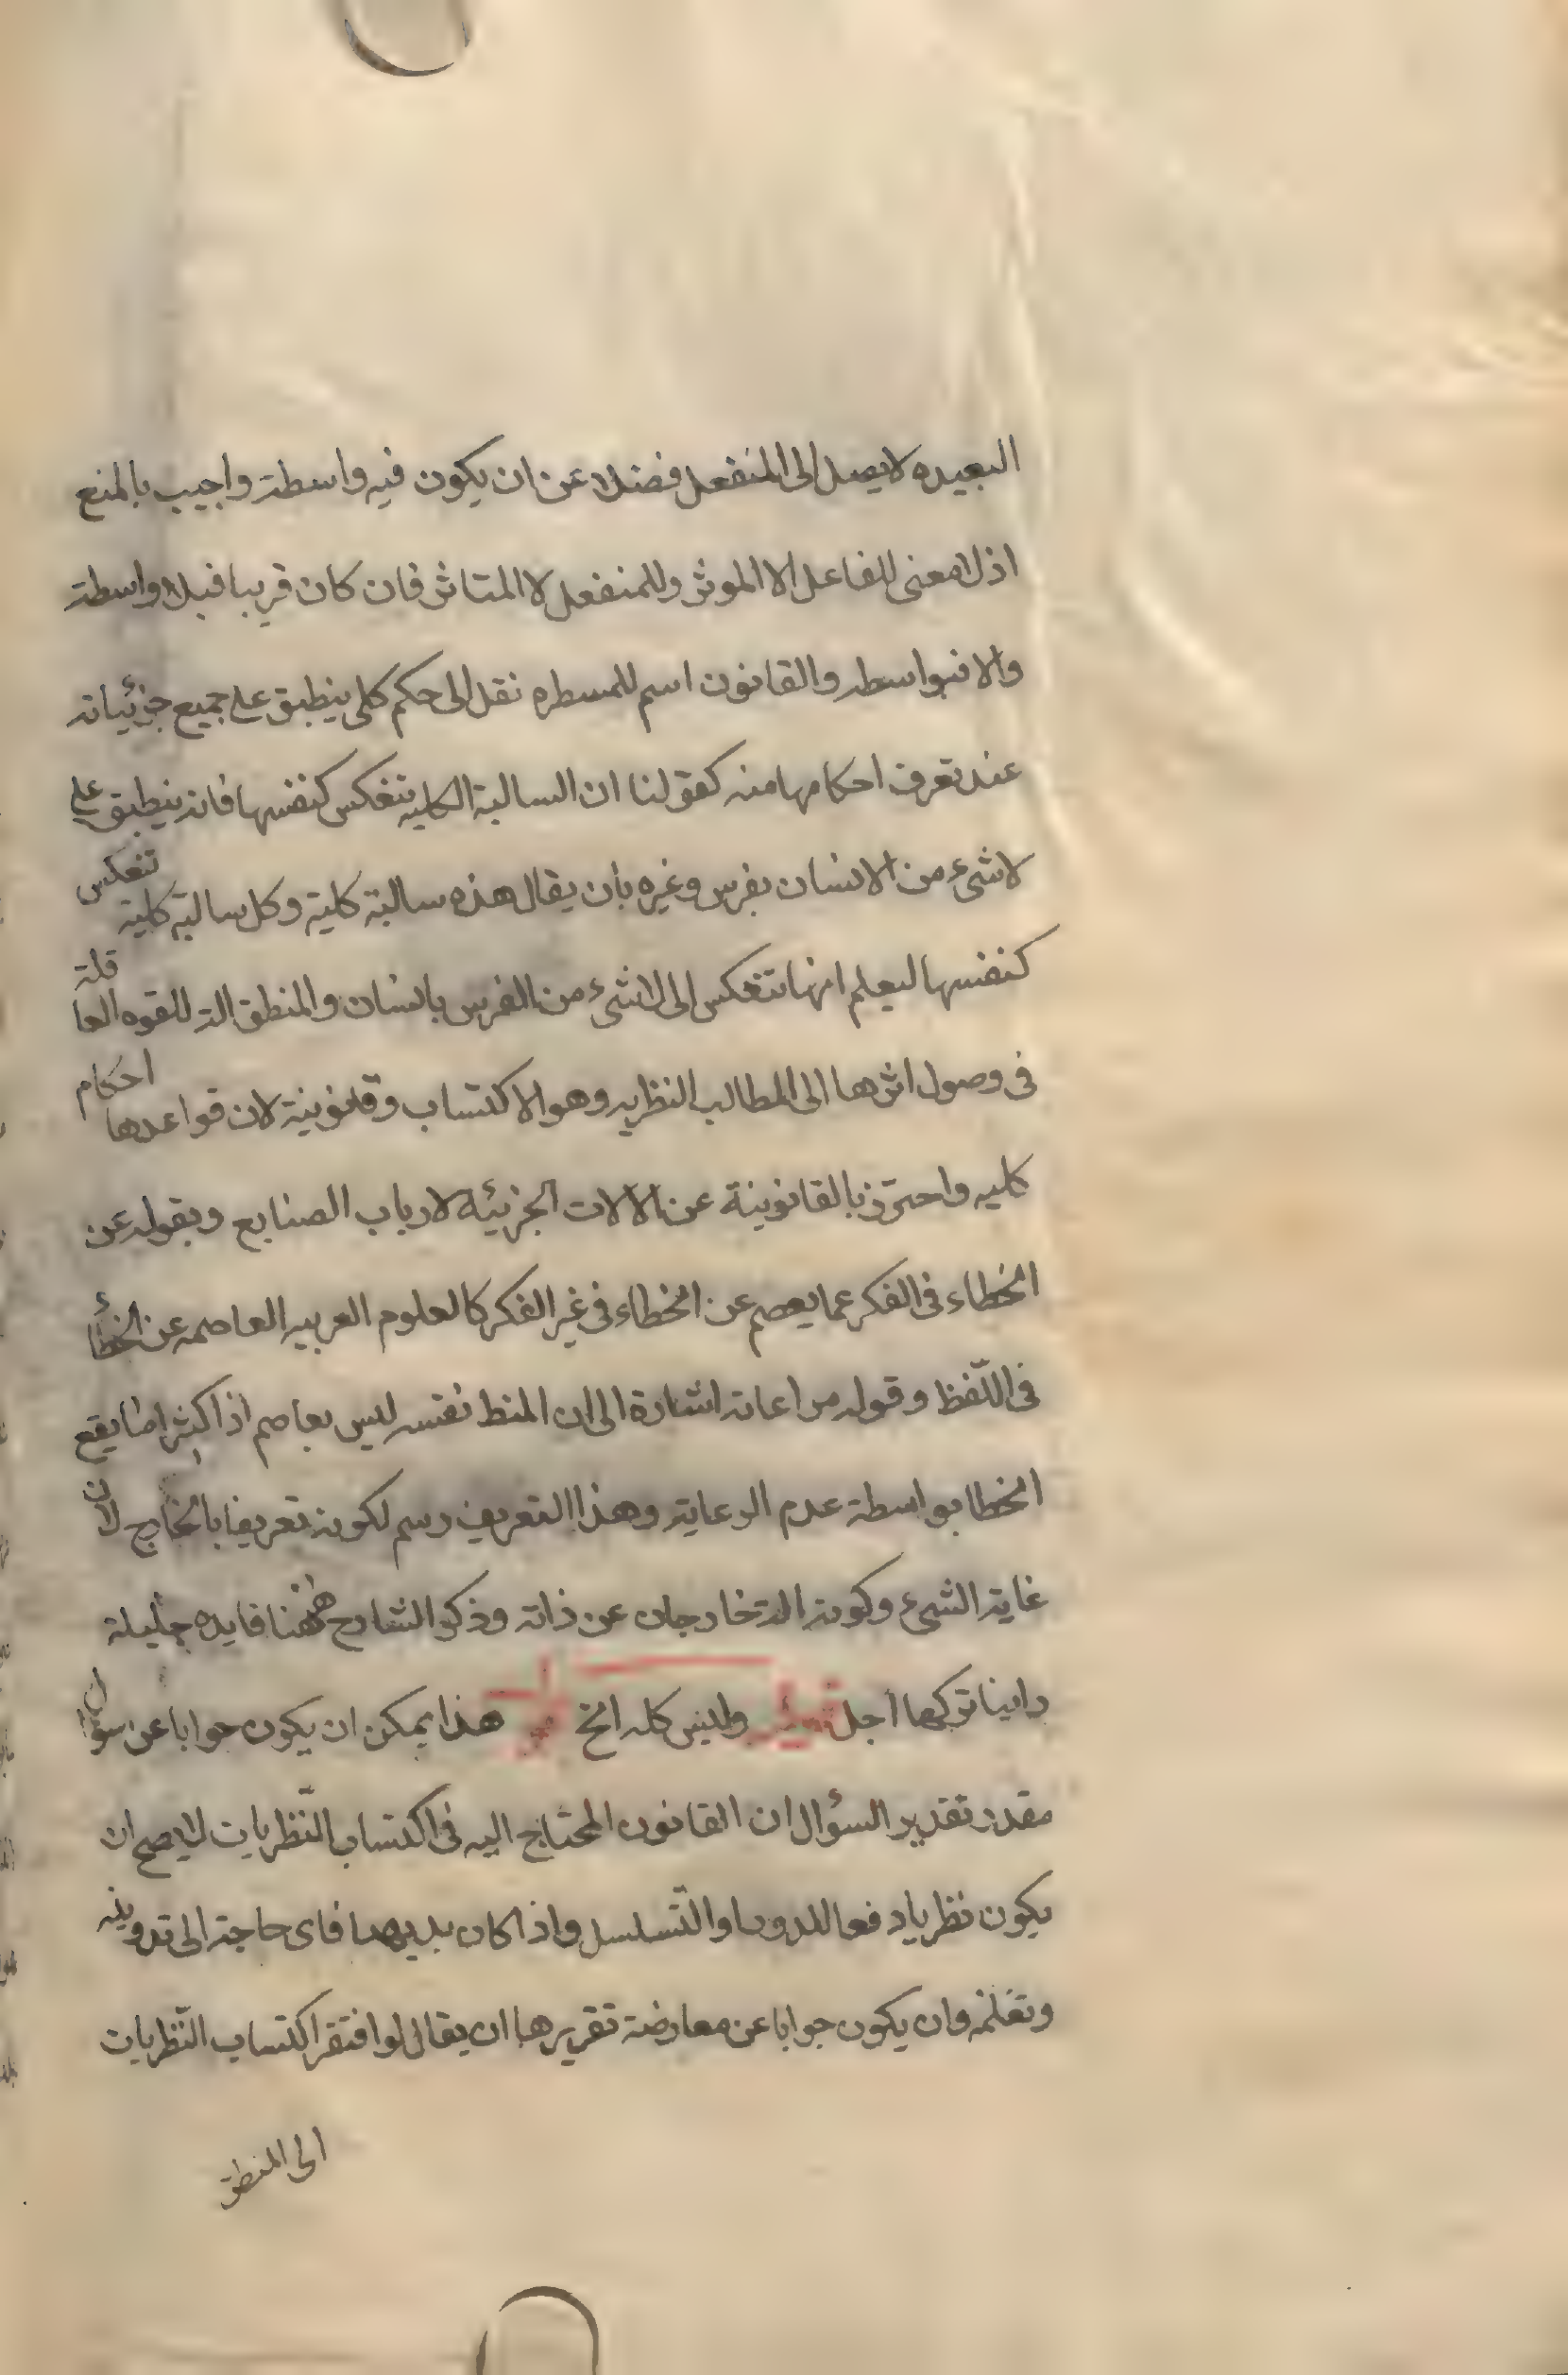 البعيده لا يصل الى المنفعل فضلا عن ان يكون فيه واسطة واجيب بالمنع
اذ لا معنى للفاعل الا الموثر وللمنفعل لا المتاثر فان كان قريبا فبلا واسطة
والا فبواسطه والقانون اسم للمسطره نقل الى حكم كلى ينطبق على جميع جزئياته
عند تعرف احكامها منه كقولنا ان السالبة الكليه تنعكس كنفسها فانه ينطبق على
لا شىء من الانسان بفرس وغيره بان يقال هذه سالبة كلية وكل سالبة كلية تنعكس
كنفسها ليعلم انها تنعكس الى لا شىء من الفرس بانسان والمنطق الة للقوه العاقلة
فى وصول اثرها الى المطالب النظريه وهو الاكتساب وقانونية لان قواعدها احكام
كليه واحترز بالقانونية عن الالات الجزئيه لارباب الصنايع وبقوله عن
الخطاء فى الفكر عما يعصم عن الخطاء فى غير الفكر كالعلوم العربيه العاصمه عن الخطأ
فى اللّفظ وقوله مراعاته اشارة الى ان المنط نفسه ليس بعاصم اذ اكثر اما يقع
الخطا بواسطة عدم الرعاية وهذا التعريف رسم لكونه تعريفا بالخارج لان
غاية الشىء وكونه الة خارجان عن ذاته وذكر الشارح ههنا فايده جليلة
راينا تركها اجل وليس كله الخ هذا يمكن ان يكون جوابا عن سؤال
مقدر تقدير السؤال ان القانون المحتاج اليه فى اكتساب النّظريات لا يصح ان
يكون نظريا دفعا للدور والتّسلسل واذا كان بديهيا فاى حاجة الى تدوينه
وتعلمه وان يكون جوابا عن معارضة تقريرها ان يقال لو افتقر اكتساب النّظريات
الى المنطق